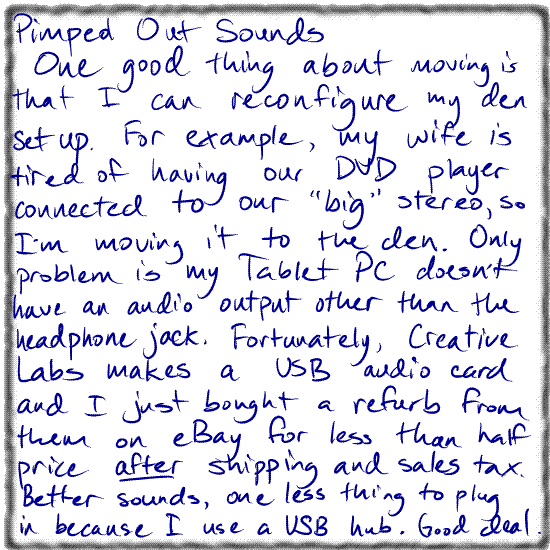 Pimped Out Sounds
One good thing about moving is
that I can reconfigure my den
set up. For example, my wife is
tired of having our DVD player
connected to our "big" stereo, so
I'm moving it to the den. Only
problem is my Tablet PC doesn't
have an audio output other than the
headphone jack. Fortunately, Creative
Labs makes a USB audio card
and I just bought a refurb from
them on eBay for less than half
price after shipping and sales tax.
Better sounds, one less thing to plug
in because I use a USB hub. Good deal.